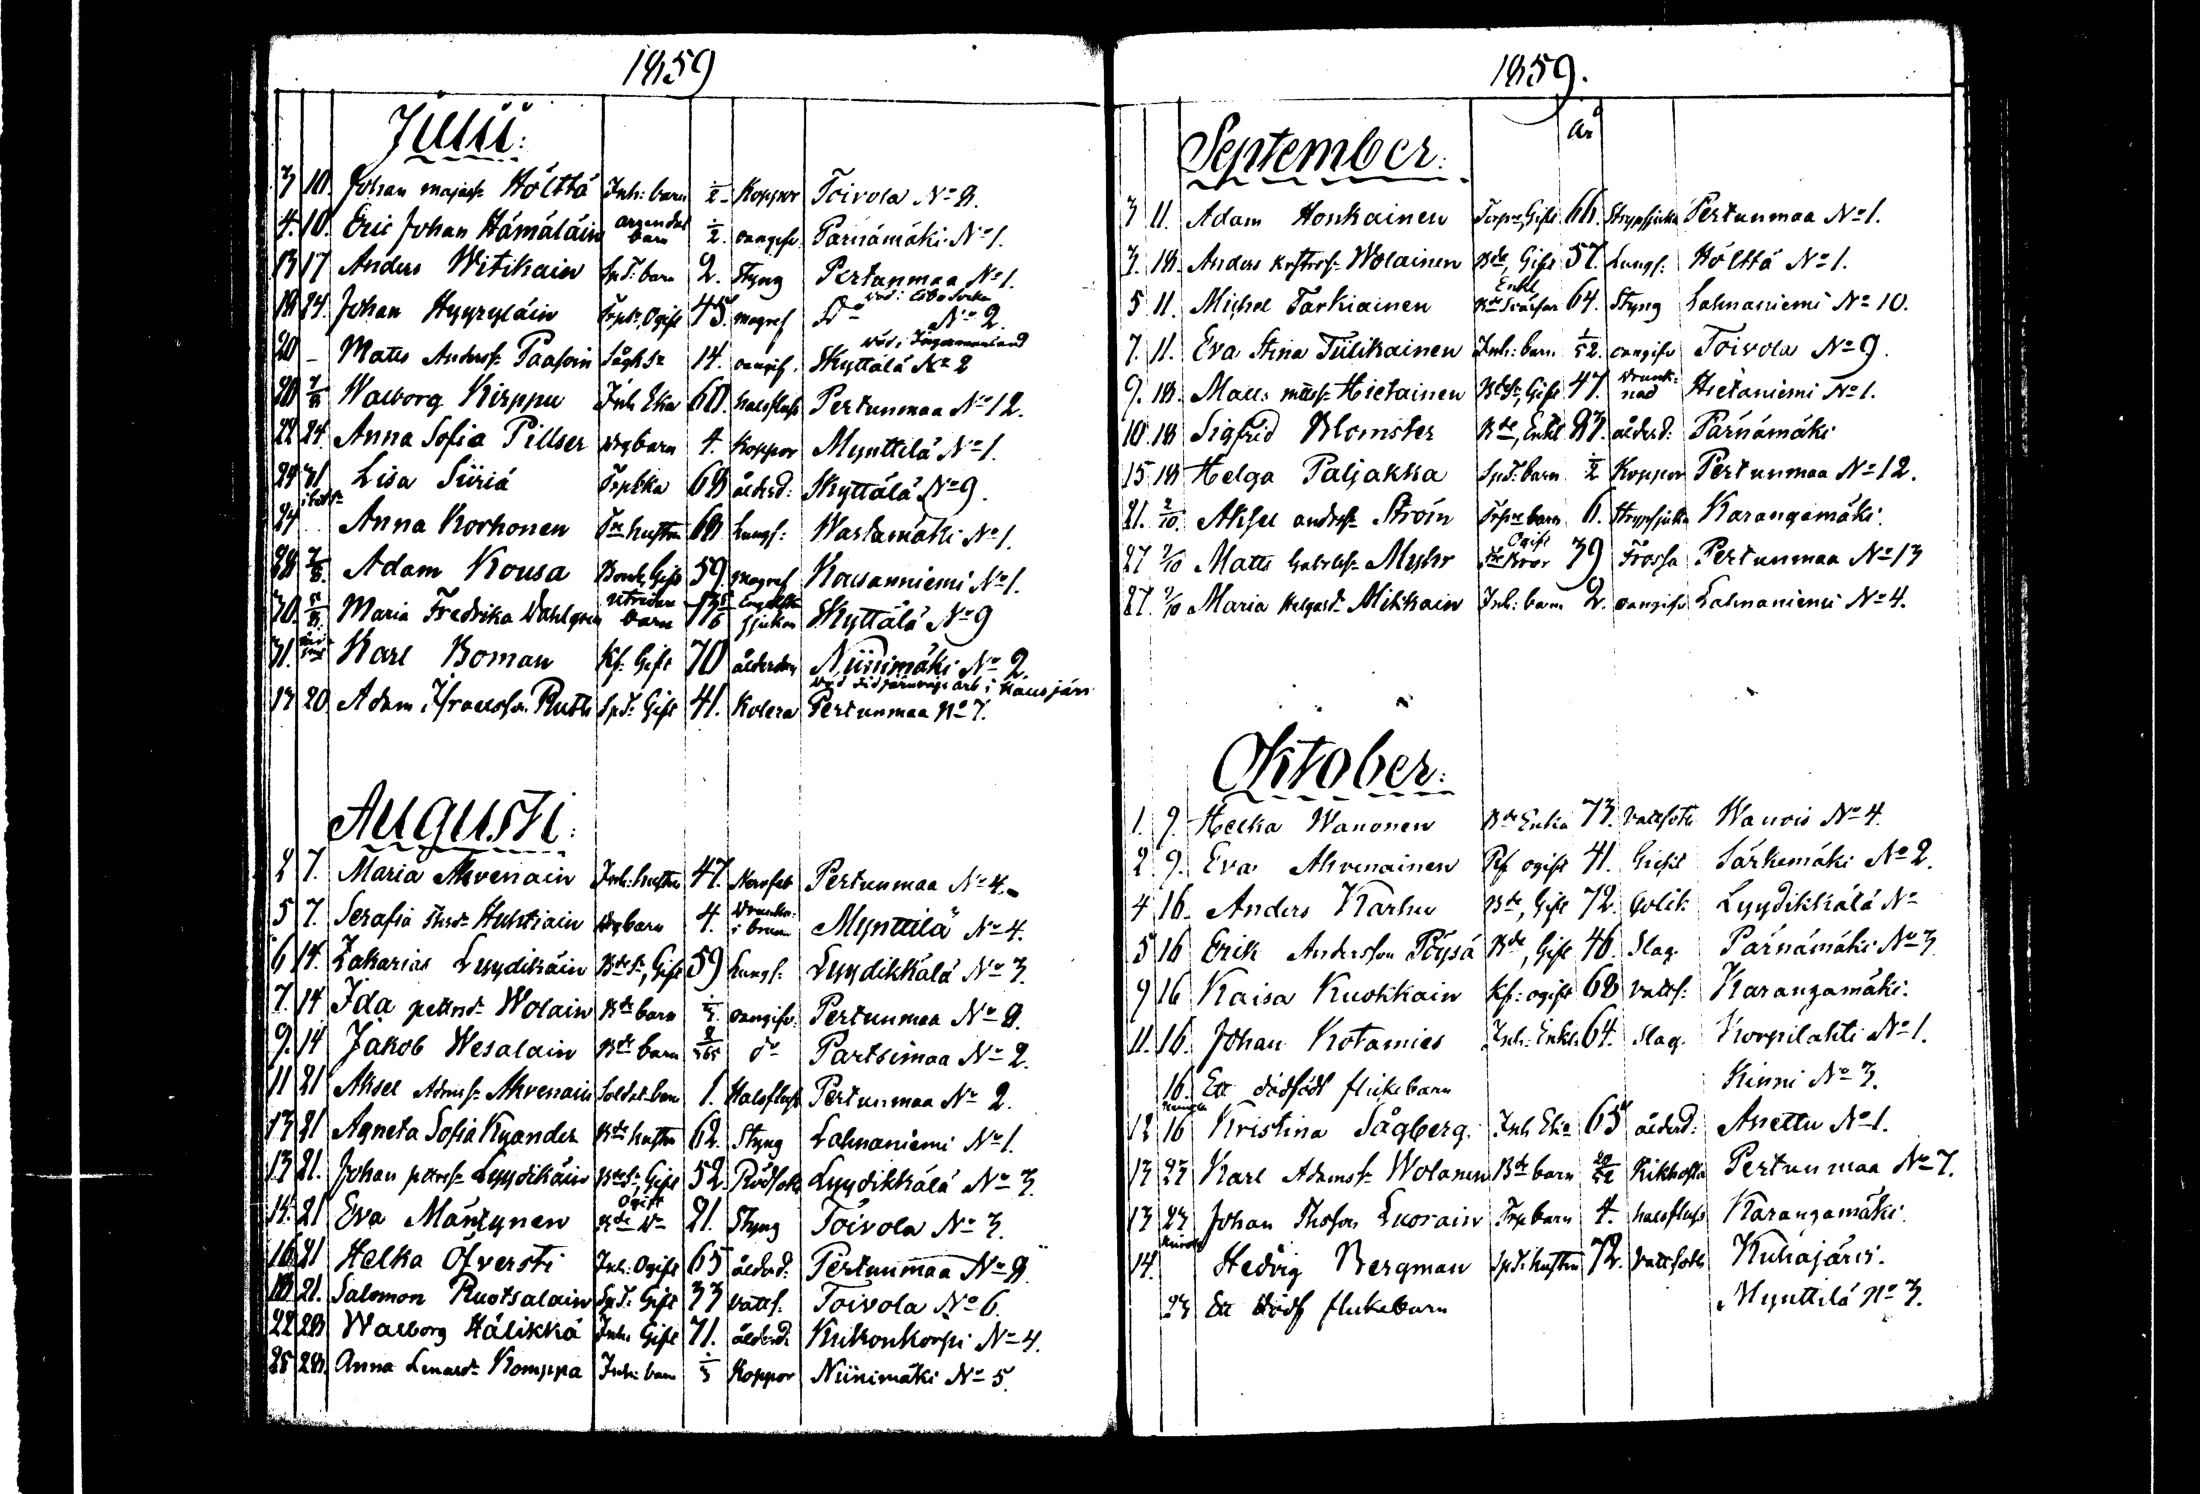 1859
Julii:
3 10. Johan majass. Hölttä Inh: barn ½ Koppor Toivola No 8.
4. 10. Eric Johan Hämäläin arrendat barn ½. oangifv. Pärnämäki No 1.
13 17 Anders Witikain Sp.T: barn 2. Styng Pertunmaa No 1.
18 24. Johan Hyyryläin Ogift 45. magref Do No 2.
20 – Matts Anderss. Paasoin 14. oangif. Kyttälä No 2
död i Ingermanland
20 7/8 Walborg Kirppu Inh Eka 60. halsfluss Pertunmaa No 12.
22 24. Anna Sofia Pillser barn 4. Koppor Mynttilä No 1.
24 31 Lisa Siiriä 68 ålderd: Kyttälä No 9.
24 Anna Korhonen hustru 68 Lungs: Wastamäki No 1.
28 7/8. Adam Kousa Gift 59. magref Kousanniemi No 1.
30. Maria Fredrika Dahlgren barn Engelska sjukan Kyttälä No 9
31. Karl Boman Kf. Gift 70 ålderdom Niinimäki No 2.
död vid järnvägs arb i Hausjärvi
13 20. Adam Israelsson Rutti Sp.T. Gift 41. Kolera Pertunmaa No 7.
Augusti:
2 7. Maria Ahvenain Inh: hustru 47. Nervfeb Pertunmaa No 4.
5 7. Serafia Huhtiain barn 4. Drunkn: i brunn Mynttilä No 4.
6 14. Zakarias Lyydikäin Gift 59 Lungs: Lyydikkälä No 3.
7. 14 Ida Wolain Bde barn oangifv. Pertunmaa No 8.
9. 14 Jakob Wesalain Bde barn 2/365 do Partsimaa No 2.
11 21 Aksel Adamss. Ahvenain Soldat barn 1. Halsfluss Pertunmaa No 2.
13 21 Agneta Sofia Kyander Bde hustru 62. Styng Lahnaniemi No 1.
13 21. Johan petterss. Lyydikäin Gift 52. Rödsot Lyydikkälä No 3.
15. 21 Eva Mäntynen Ogift 21. Styng Toivola No 3.
16 21 Helka Öfversti Inh: Ogift 65 ålderd: Pertunmaa No 8.
18 21. Salomon Ruotsalain Sp.T. Gift 33 Vatts. Toivola No 6.
22 28 Walborg Hälikkä Inh: Gift 71. ålderd: Kuhonkorpi No 4.
25 28. Anna Lenard. Komppa Inh: barn 1/3 Koppor Niinimäki No 5.
1859.
år
September:
3 11. Adam Honkainen Gift 66. Strypsjuka Pertunmaa No 1.
3. 18. Anders Wolainen Bde, Gift 57. Lungs: Hölttä No 1.
5 11. Michel Tarkiainen Enkl 64. Styng Lahnaniemi No 10.
7. 11. Eva Stina Tiilikainen Inh: barn 1/52. oangifv Toivola No 9.
9. 18. Matts mattss. Hietainen Gift 47. Drunknad Hietaniemi No 1.
10. 18 Sigfrid Blomster Bde, Enkl 87. ålderd: Pärnämäki
15 18 Helga Paljakka Sp.T: barn ½ Koppor Pertunmaa No 12.
21. 2/10. Aksel anderss. Ströin barn 6. Strypsjuka Karangamäki.
27 2/10 Matts Gabrielss. Myhr Ogift 39 Frossa Pertunmaa No 13
27. 2/10 Maria Mikkain Inh: barn 2. oangifv Lahnaniemi No 4.
Oktober:
1. 9. Helka Wanonen Bde Enka 73. Vattsot Wanois No 4.
2. 9. Eva Ahvenainen ogift 41. Gikt Särkemäki No 2.
4 16. Anders Karhu Bde, Gift 72. Kolik Lyydikkälä No
5 16 Erik Andersson Pöysä Bde, Gift 46. Slag. Pärnämäki No 3.
9 16 Kaisa Kuokkain Kf: ogift 68 Vatts: Karangamäki.
11. 16. Johan Kotamies Inh: Enkl. 64. Slag. Korpilahti No 1.
16. Ett dödfödt flickebarn Kinni No 3.
12 16 Kristina Sågberg. Inh Eka 65 ålderd: Anettu No 1.
13 23 Karl Adamss. Wolanen Bde barn 20/52 Kikhosta Pertunmaa No 7.
13 23 Johan Luosain barn 4. halsfluss Karangamäki.
14. Hedvig Bergman Sp.T. hustru 72. Vattsot Kuhajärvi.
23 Ett dödf flickebarn Mynttilä No 3.